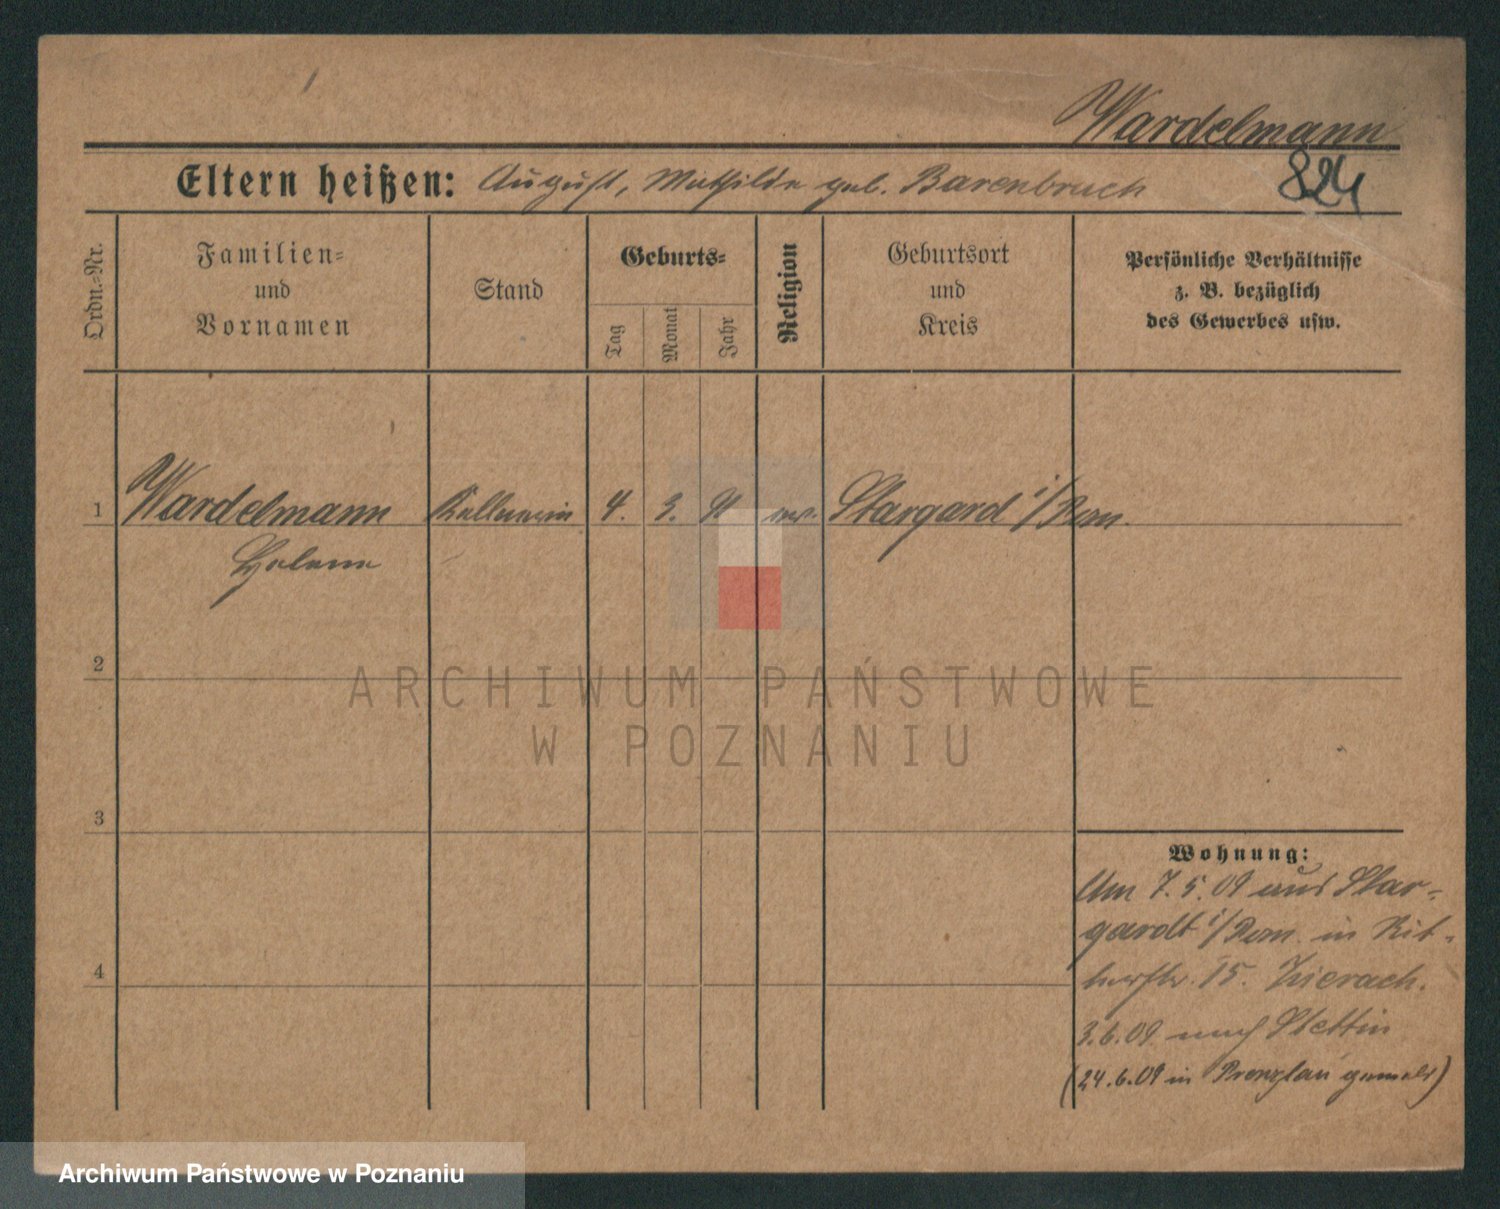 Wardelmann
824
Eltern heißen: August, Mathilde geb. Barenbruch
Ordn.-Nr.
Familien-
und
Vornamen
Stand
Geburts-
Tag
Monat
Jahr
Religion
Geburtsort
und
Kreis
Persönliche Verhältnisse
z. B. bezüglich
des Gewerbes usw.
1 Wardelmann Kellnerin 4. 3. ev. Stargard i/Pom.
Helene
2
ARCHIWUM PAŃSTWOWE
W POZNANIU
3
Wohnung:
Am 7.5.09 aus Star-
gardt i/Pom. in
15.
3.6.09 nach Stettin
(24.6.09 in Prenzlau gemeld)
4
Archiwum Państwowe w Poznaniu